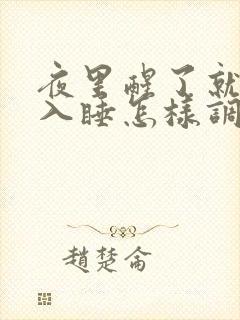 夜里醒了就
入睡怎樣調
趙楚侖